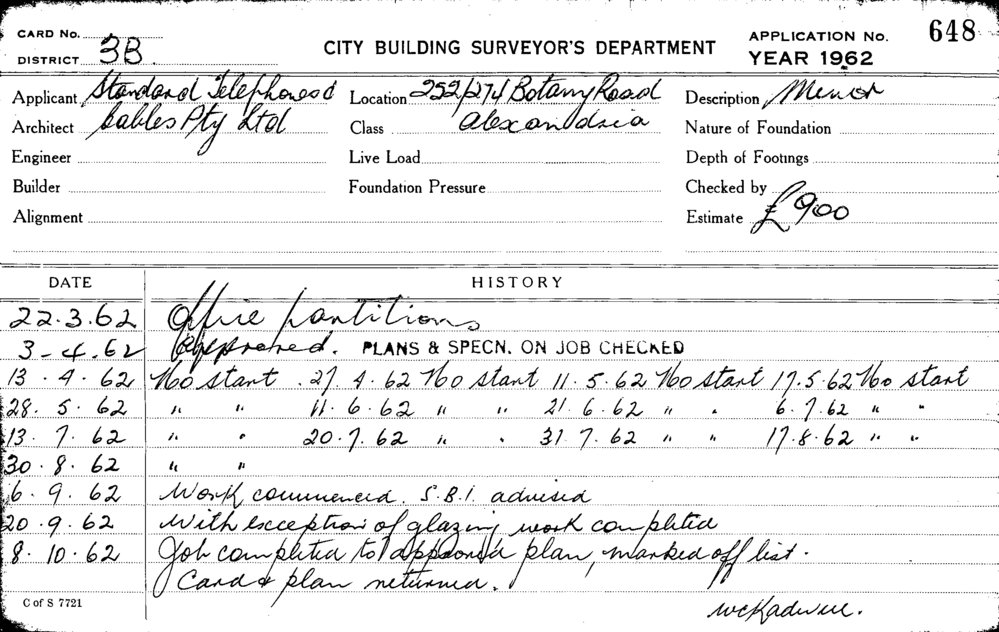 CARD No.
DISTRICT 3B
CITY BUILDING SURVEYOR'S DEPARTMENT
APPLICATION No. 648
YEAR 1962
Applicant Standard Telephones & Location 252/274 Botany Road Description Minor
Architect Cables Pty Ltd Class Alexandria Nature of Foundation
Engineer Live Load Depth of Footings
Builder Foundation Pressure Checked by
Alignment Estimate £900
DATE HISTORY
22.3.62 Office partitions
3-4.62 Approved. PLANS & SPECN. ON JOB CHECKED
13.4.62 No start. 27.4.62 No start 11.5.62 No start 17.5.62 No start
28.5.62 " " 11.6.62 " " 21.6.62 " " 6.7.62 " "
13.7.62 " " 20.7.62 " " 31.7.62 " " 17.8.62 " "
30.8.62 " "
6.9.62 Work commenced. S.B.I. advised
20.9.62 With exception of glazing work completed
8.10.62 Job completed to approved plan, marked off list.
Card & plan returned.
C of S 7721